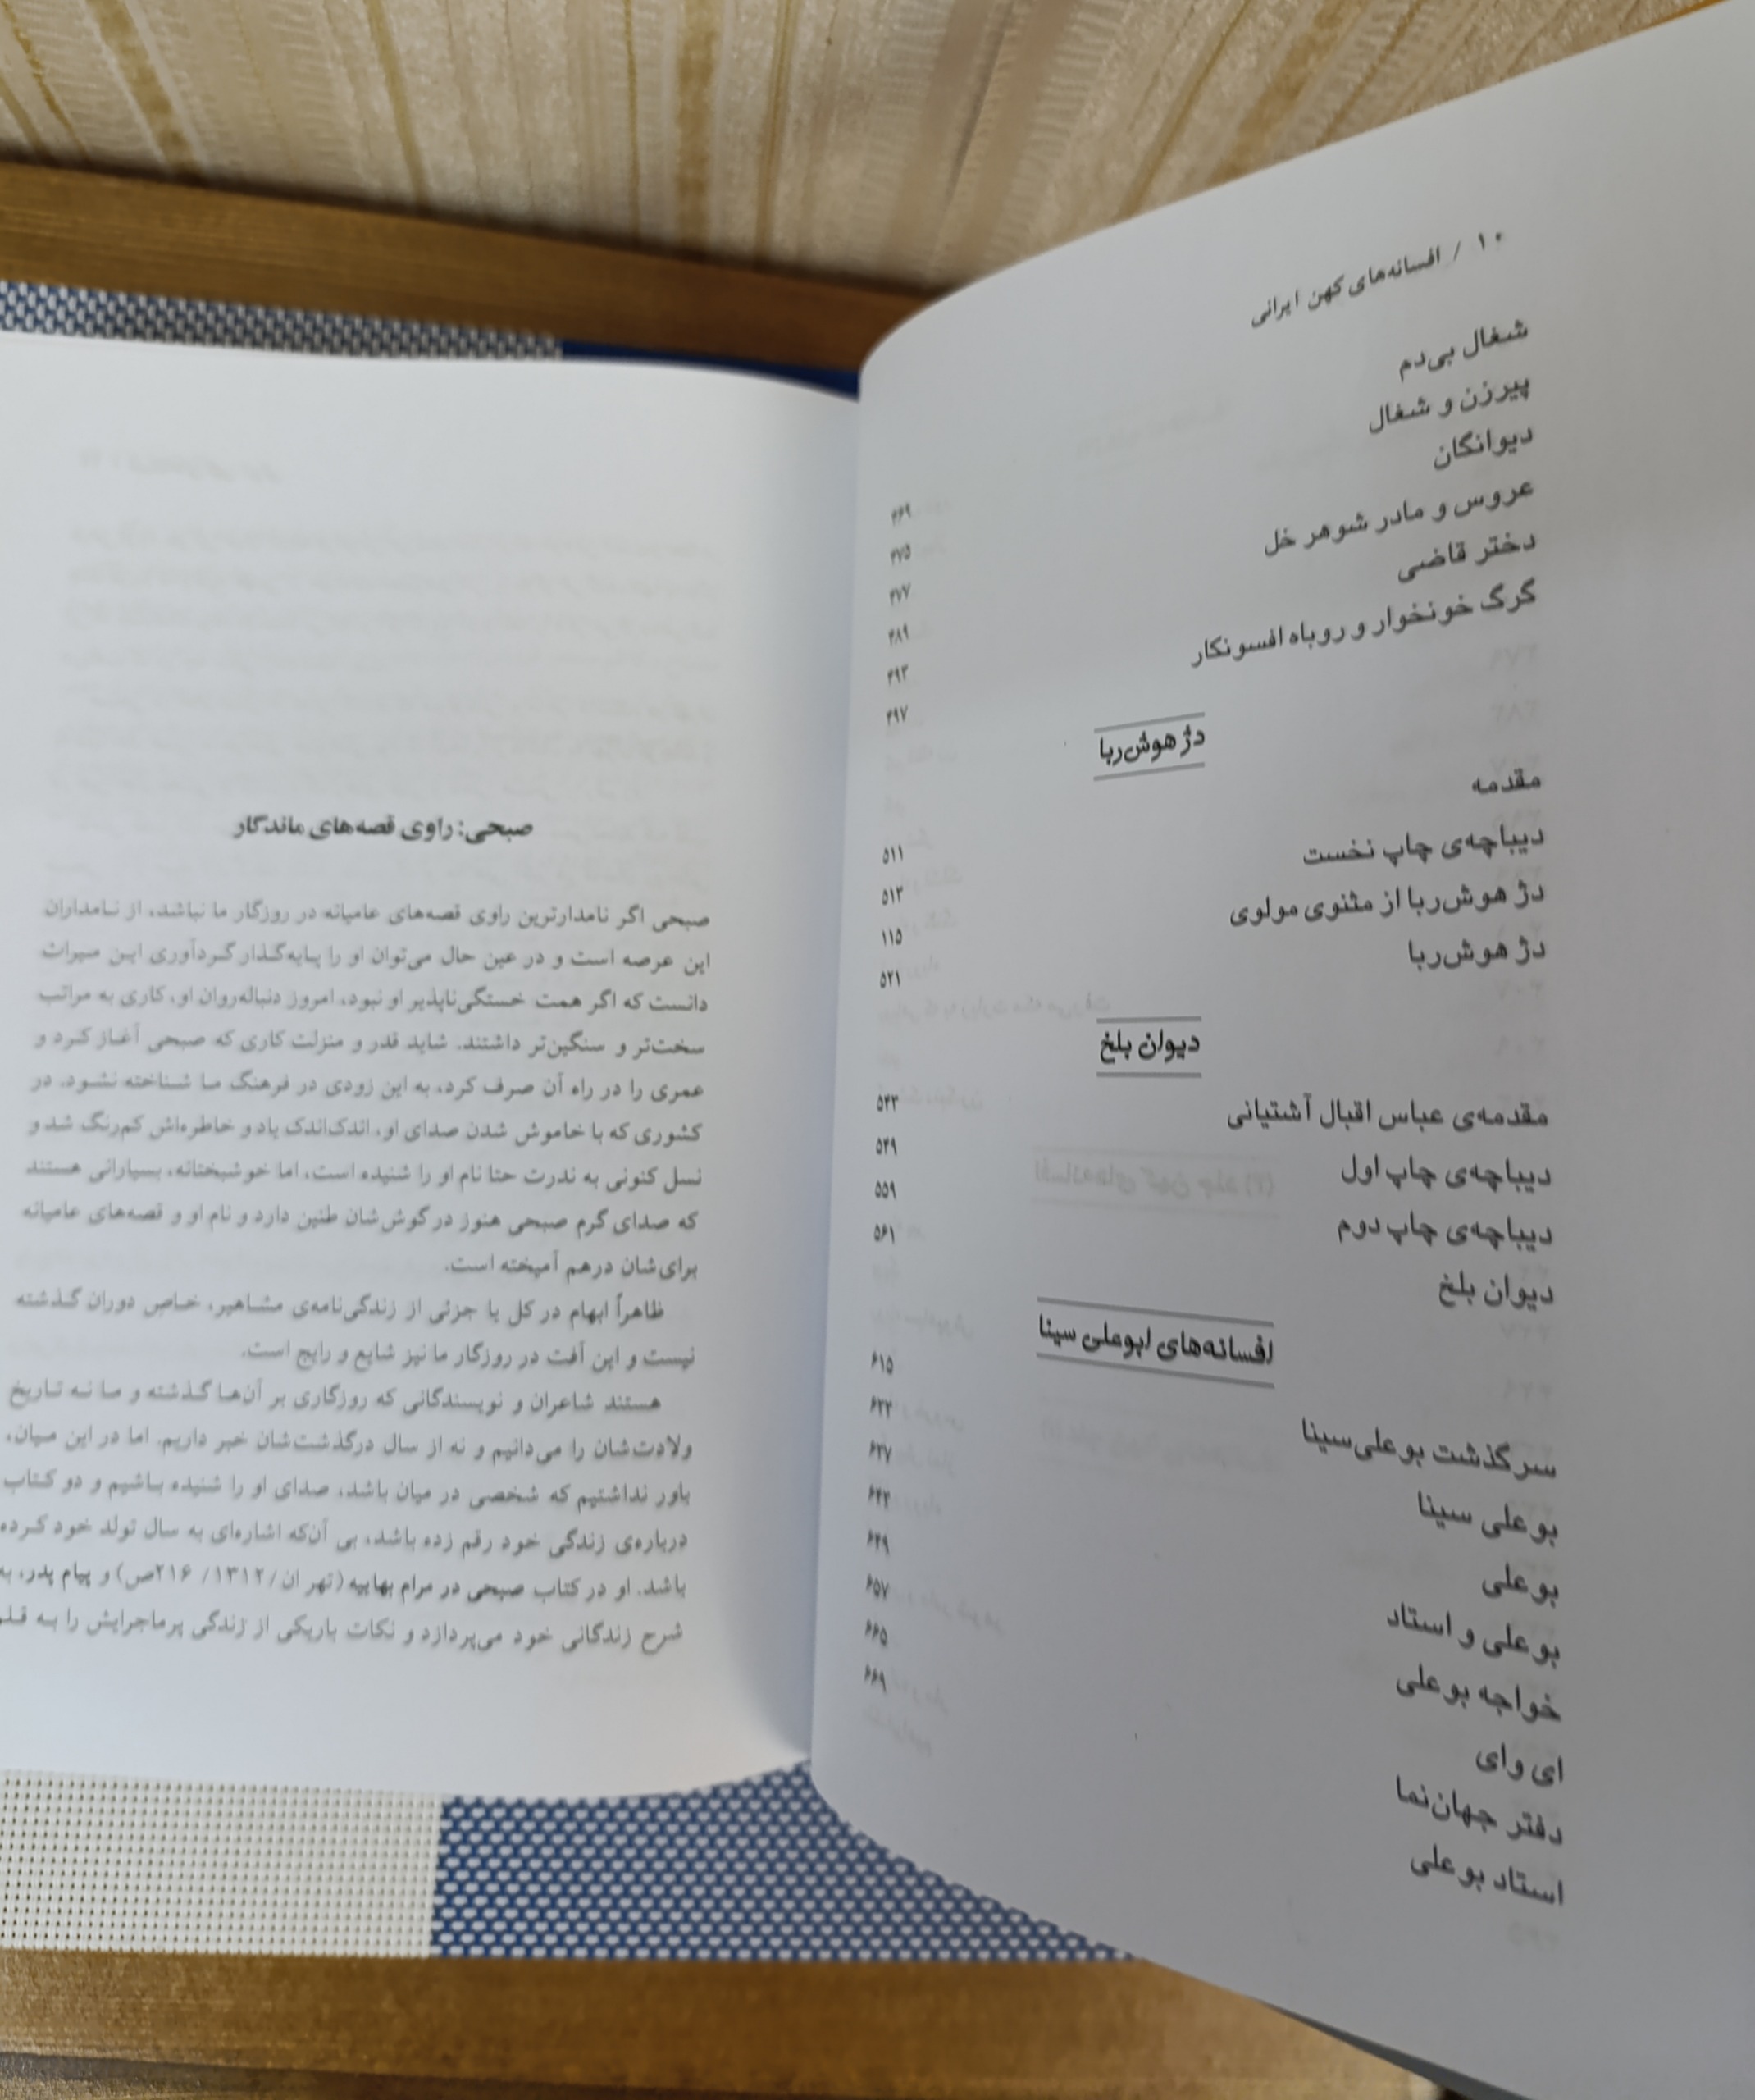 ۱۰ / افسانه‌های کهن ایرانی
شغال بی‌دم ۴۶۹
پیرزن و شغال ۴۷۵
دیوانگان ۴۷۷
عروس و مادر شوهر خل ۴۸۹
دختر قاضی ۴۹۳
گرگ خونخوار و روباه افسونکار ۴۹۷
دژ هوش‌ربا
مقدمه ۵۱۱
دیباچه‌ی چاپ نخست ۵۱۳
دژ هوش‌ربا از مثنوی مولوی ۱۱۵
دژ هوش‌ربا ۵۲۱
دیوان بلخ
مقدمه‌ی عباس اقبال آشتیانی ۵۴۳
دیباچه‌ی چاپ اول ۵۴۹
دیباچه‌ی چاپ دوم ۵۵۹
دیوان بلخ ۵۶۱
افسانه‌های ابوعلی سینا
سرگذشت بوعلی‌سینا ۶۱۵
بوعلی سینا
بوعلی ۶۳۷
بوعلی و استاد
خواجه بوعلی ۶۴۹
ای وای ۶۵۷
دفتر جهان‌نما ۶۶۵
استاد بوعلی ۶۶۹
صبحی: راوی قصه‌های ماندگار
صبحی اگر نامدارترین راوی قصه‌های عامیانه در روزگار ما نباشد، از نامداران
این عرصه است و در عین حال می‌توان او را پایه‌گذار گردآوری این میراث
دانست که اگر همت خستگی‌ناپذیر او نبود، امروز دنباله‌روان او، کاری به مراتب
سخت‌تر و سنگین‌تر داشتند. شاید قدر و منزلت کاری که صبحی آغاز کرد و
عمری را در راه آن صرف کرد، به این زودی در فرهنگ ما شناخته نشود. در
کشوری که با خاموش شدن صدای او، اندک‌اندک یاد و خاطره‌اش کم‌رنگ شد و
نسل کنونی به ندرت حتا نام او را شنیده است، اما خوشبختانه، بسیارانی هستند
که صدای گرم صبحی هنوز در گوش‌شان طنین دارد و نام او و قصه‌های عامیانه
برای‌شان درهم آمیخته است.
ظاهراً ابهام در کل یا جزئی از زندگی‌نامه‌ی مشاهیر، خاص دوران گذشته
نیست و این آفت در روزگار ما نیز شایع و رایج است.
هستند شاعران و نویسندگانی که روزگاری بر آن‌ها گذشته و ما نه تاریخ
ولادت‌شان را می‌دانیم و نه از سال درگذشت‌شان خبر داریم. اما در این میان،
باور نداشتیم که شخصی در میان باشد، صدای او را شنیده باشیم و دو کتاب
درباره‌ی زندگی خود رقم زده باشد، بی آن‌که اشاره‌ای به سال تولد خود کرده
باشد. او در کتاب صبحی در مرام بهاییه (تهران/ ۱۳۱۲/ ۲۱۶ص) و پیام پدر، به
شرح زندگانی خود می‌پردازد و نکات باریکی از زندگی پرماجرایش را به قلم